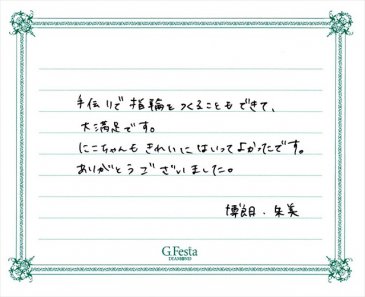 手伝りで指輪をつくることもできて、
大満足です。
にこちゃんもきれいにはいってよかったです。
ありがとうございました。
博朗・朱美
G.Festa
DIAMOND